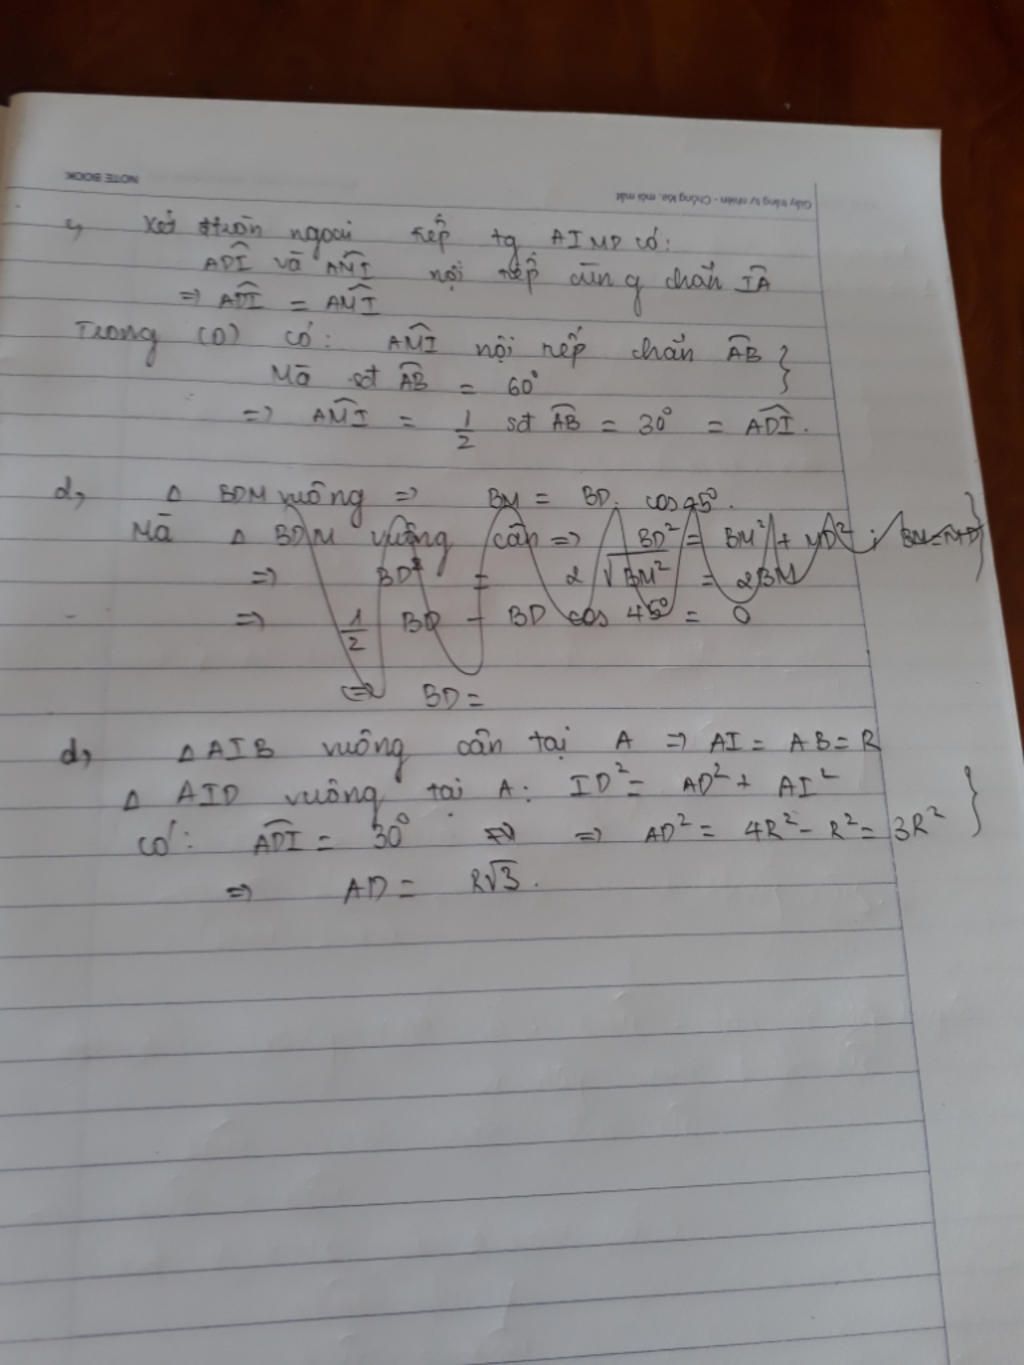 NOTE BOOK
Giấy trắng tự nhiên - Chống lóa, mỏi mắt
c, Xét đtròn ngoại tiếp tg AIMD có:
ADI và AMI nội tiếp cùng chắn IA
=> ADI = AMI
Trong (O) có: AMI nội tiếp chắn AB }
Mà sđ AB = 60°
=> AMI = 1/2 sđ AB = 30° = ADI.
d, Δ BDM vuông => BM = BD. cos 45°.
Mà Δ BDM vuông cân => BD² = BM² + MD² ; BM=MD }
=> BD² = 2 √BM² = 2BM
=> 1/2 BD - BD cos 45° = 0
<=> BD =
d, Δ AIB vuông cân tại A => AI = AB = R
Δ AID vuông tại A: ID² = AD² + AI² }
có: ADI = 30° => => AD² = 4R² - R² = 3R²
=> AD = R√3.